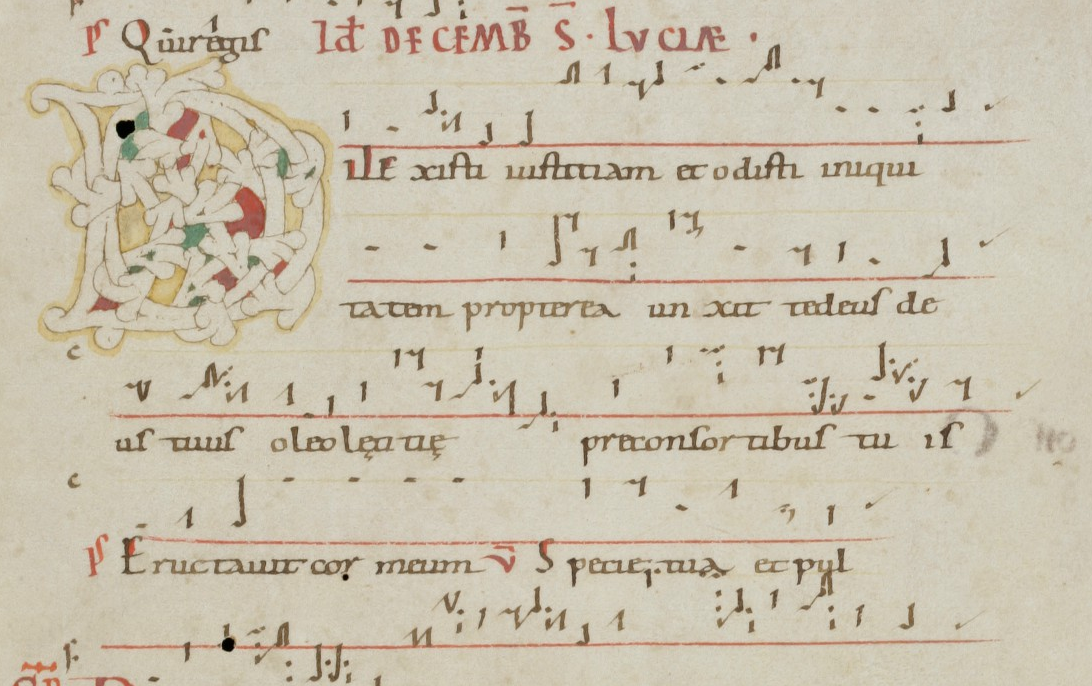 p̄s Qui regis Id̄ DECEMB̄ S̄· LVCIAE ·
DILE xisti iustitiam et odisti iniqui
tatem propterea un xit te deus de
us tuus oleo lęti tię pre consor tibus tu is
p̄s Eructauit cor meum v̄ Specie tua et pul